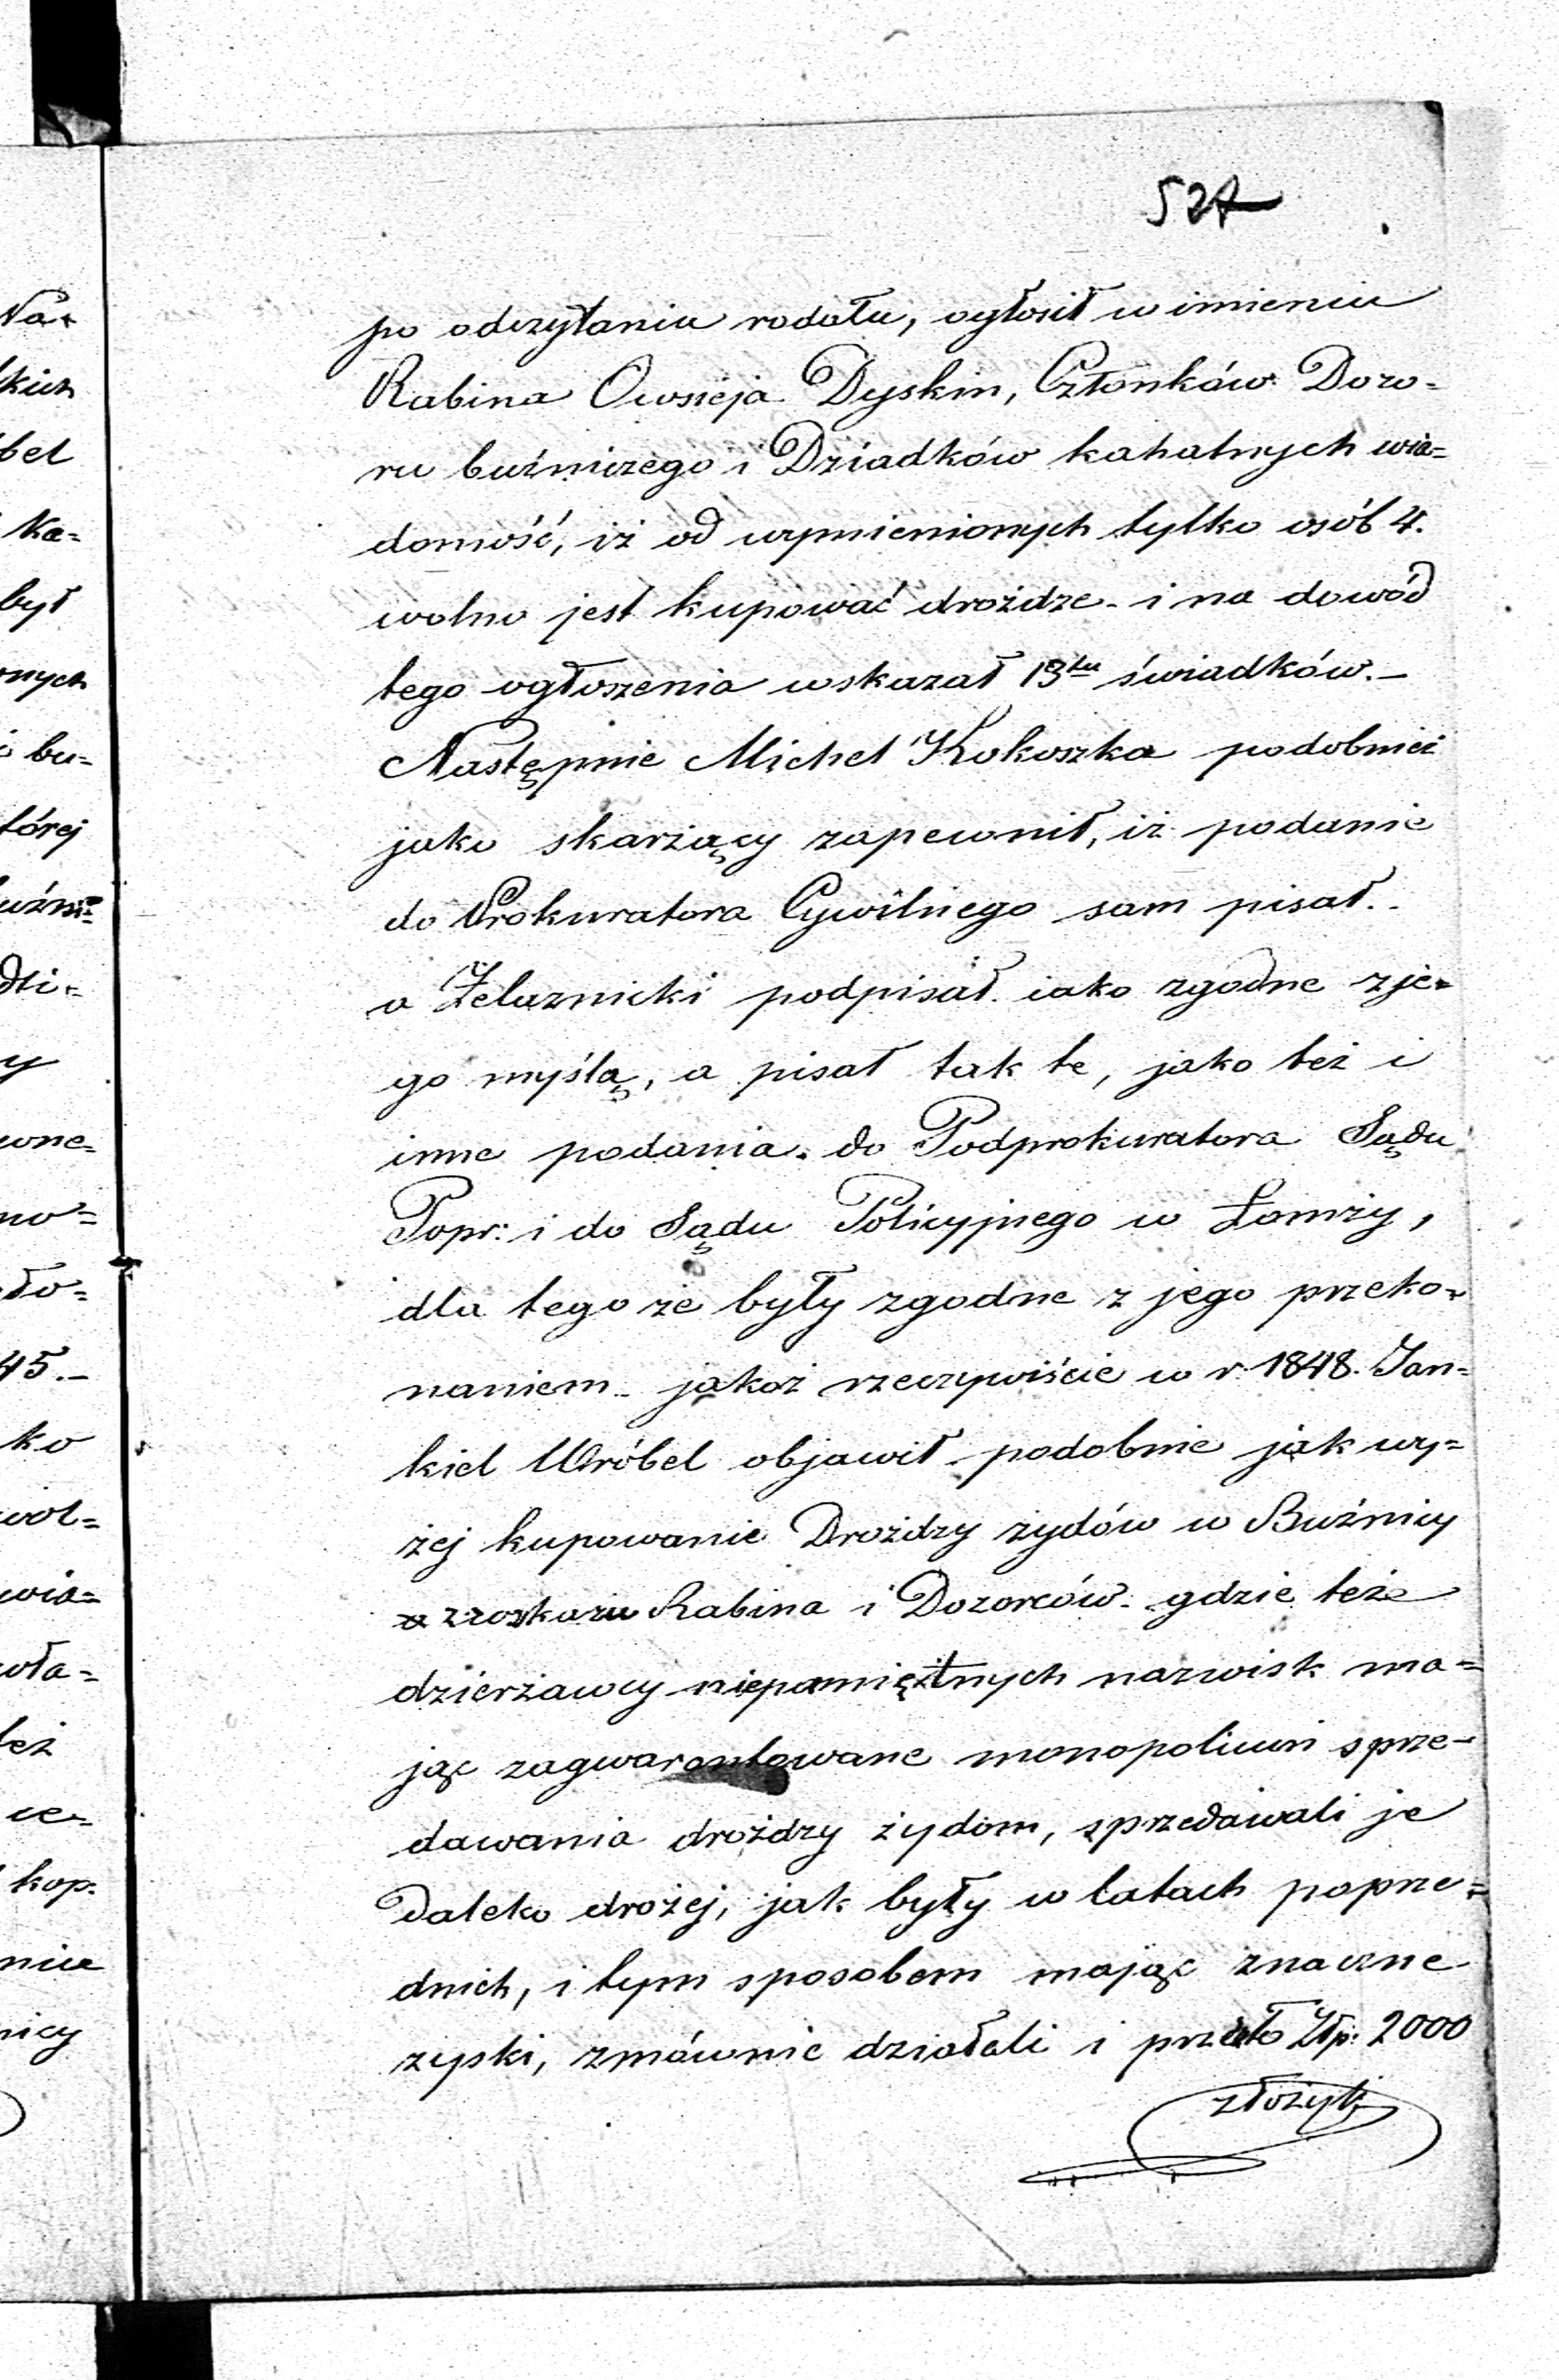 527
po odczytaniu rodału, ogłosił w imieniu
Rabina Owsieja Dyskin, Członków Dozo=
ru buźniczego i Dziadków kahalnych wia=
domość, iż od wymienionych tylko osób 4.
wolno jest kupować drożdże - i na dowód
tego ogłoszenia wskazał 13tu świadków. -
Następnie Michel Kokoszka podobnież
jako skarżący zapewnił, iż podanie
do Prokuratora Cywilnego sam pisał. -
a Żelaznicki podpisał iako zgodne z je=
go myślą, a pisał tak te, jako też i
inne podania do Podprokuratora Sądu
Popr: i do Sądu Policyjnego w Łomży,
dla tego że były zgodne z jego przeko=
naniem - jakoż rzeczywiście w r. 1848. Jan=
kiel Wróbel objawił podobnie jak wy=
żej kupowanie Drożdży żydów w Buźnicy
z rozkazu Rabina i Dozorców - gdzie też
dzierżawcy niepamiętnych nazwisk ma=
jąc zagwarantowane monopolium sprze-
dawania drożdży żydom, sprzedawali je
daleko drożej, jak były w latach poprze=
dnich, i tym sposobem mając znaczne
zyski, zmównie działali i przeto Złp: 2000
złożyli
Na=
kich
bel
ka=
był
onych
i bu=
tórej
uźni=
dli=
y
wne=
no=
do=
45. -
ko
wol=
wia=
oła=
też
ce=
kop.
niu
nicy